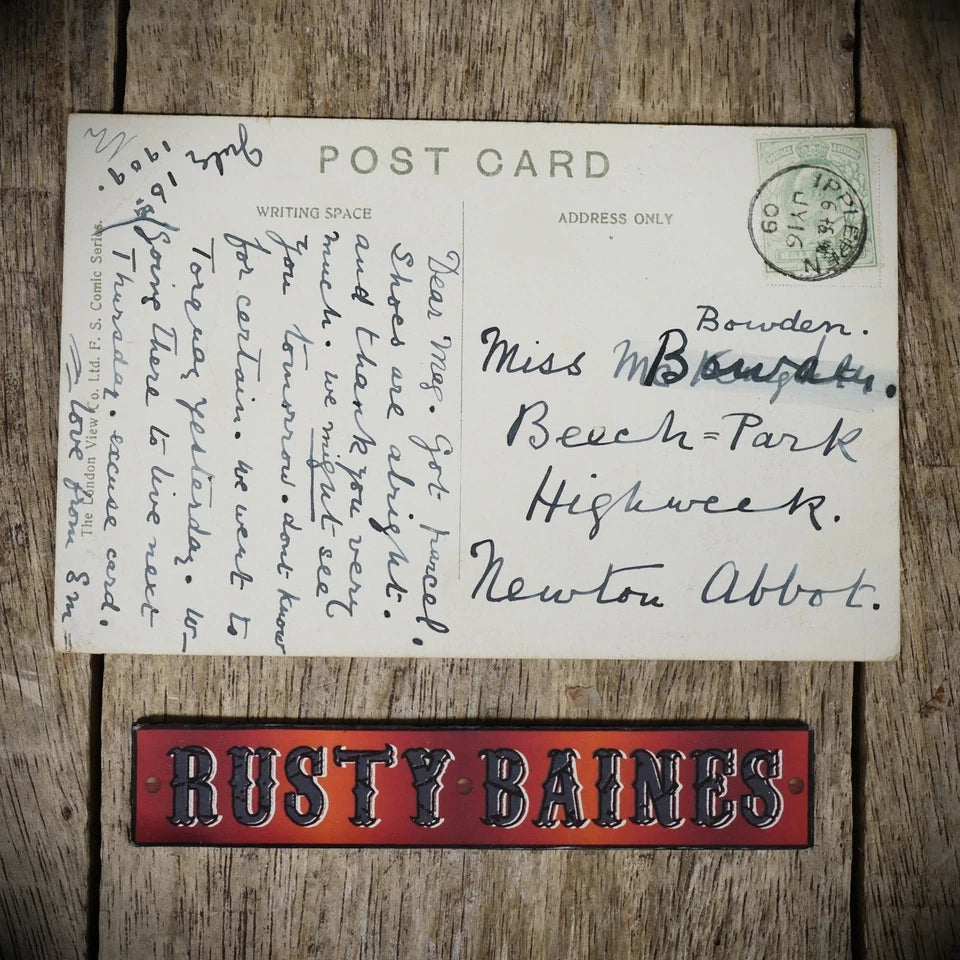 POST CARD
WRITING SPACE
ADDRESS ONLY
July
16.
1909.
Dear Meg. Got parcel.
Shoes are alright.
and thank you very
much. we might see
you tomorrow. dont know
for certain. we went to
Torquay yesterday. to-
Going there to live next
Thursday. excuse card.
= love from Em =
The London View Co. Ltd. F. S. Comic Series.
IPPLEPEN
JY 16
09
Bowden.
Miss
Beech=Park
Highweek.
Newton Abbot.
RUSTY BAINES